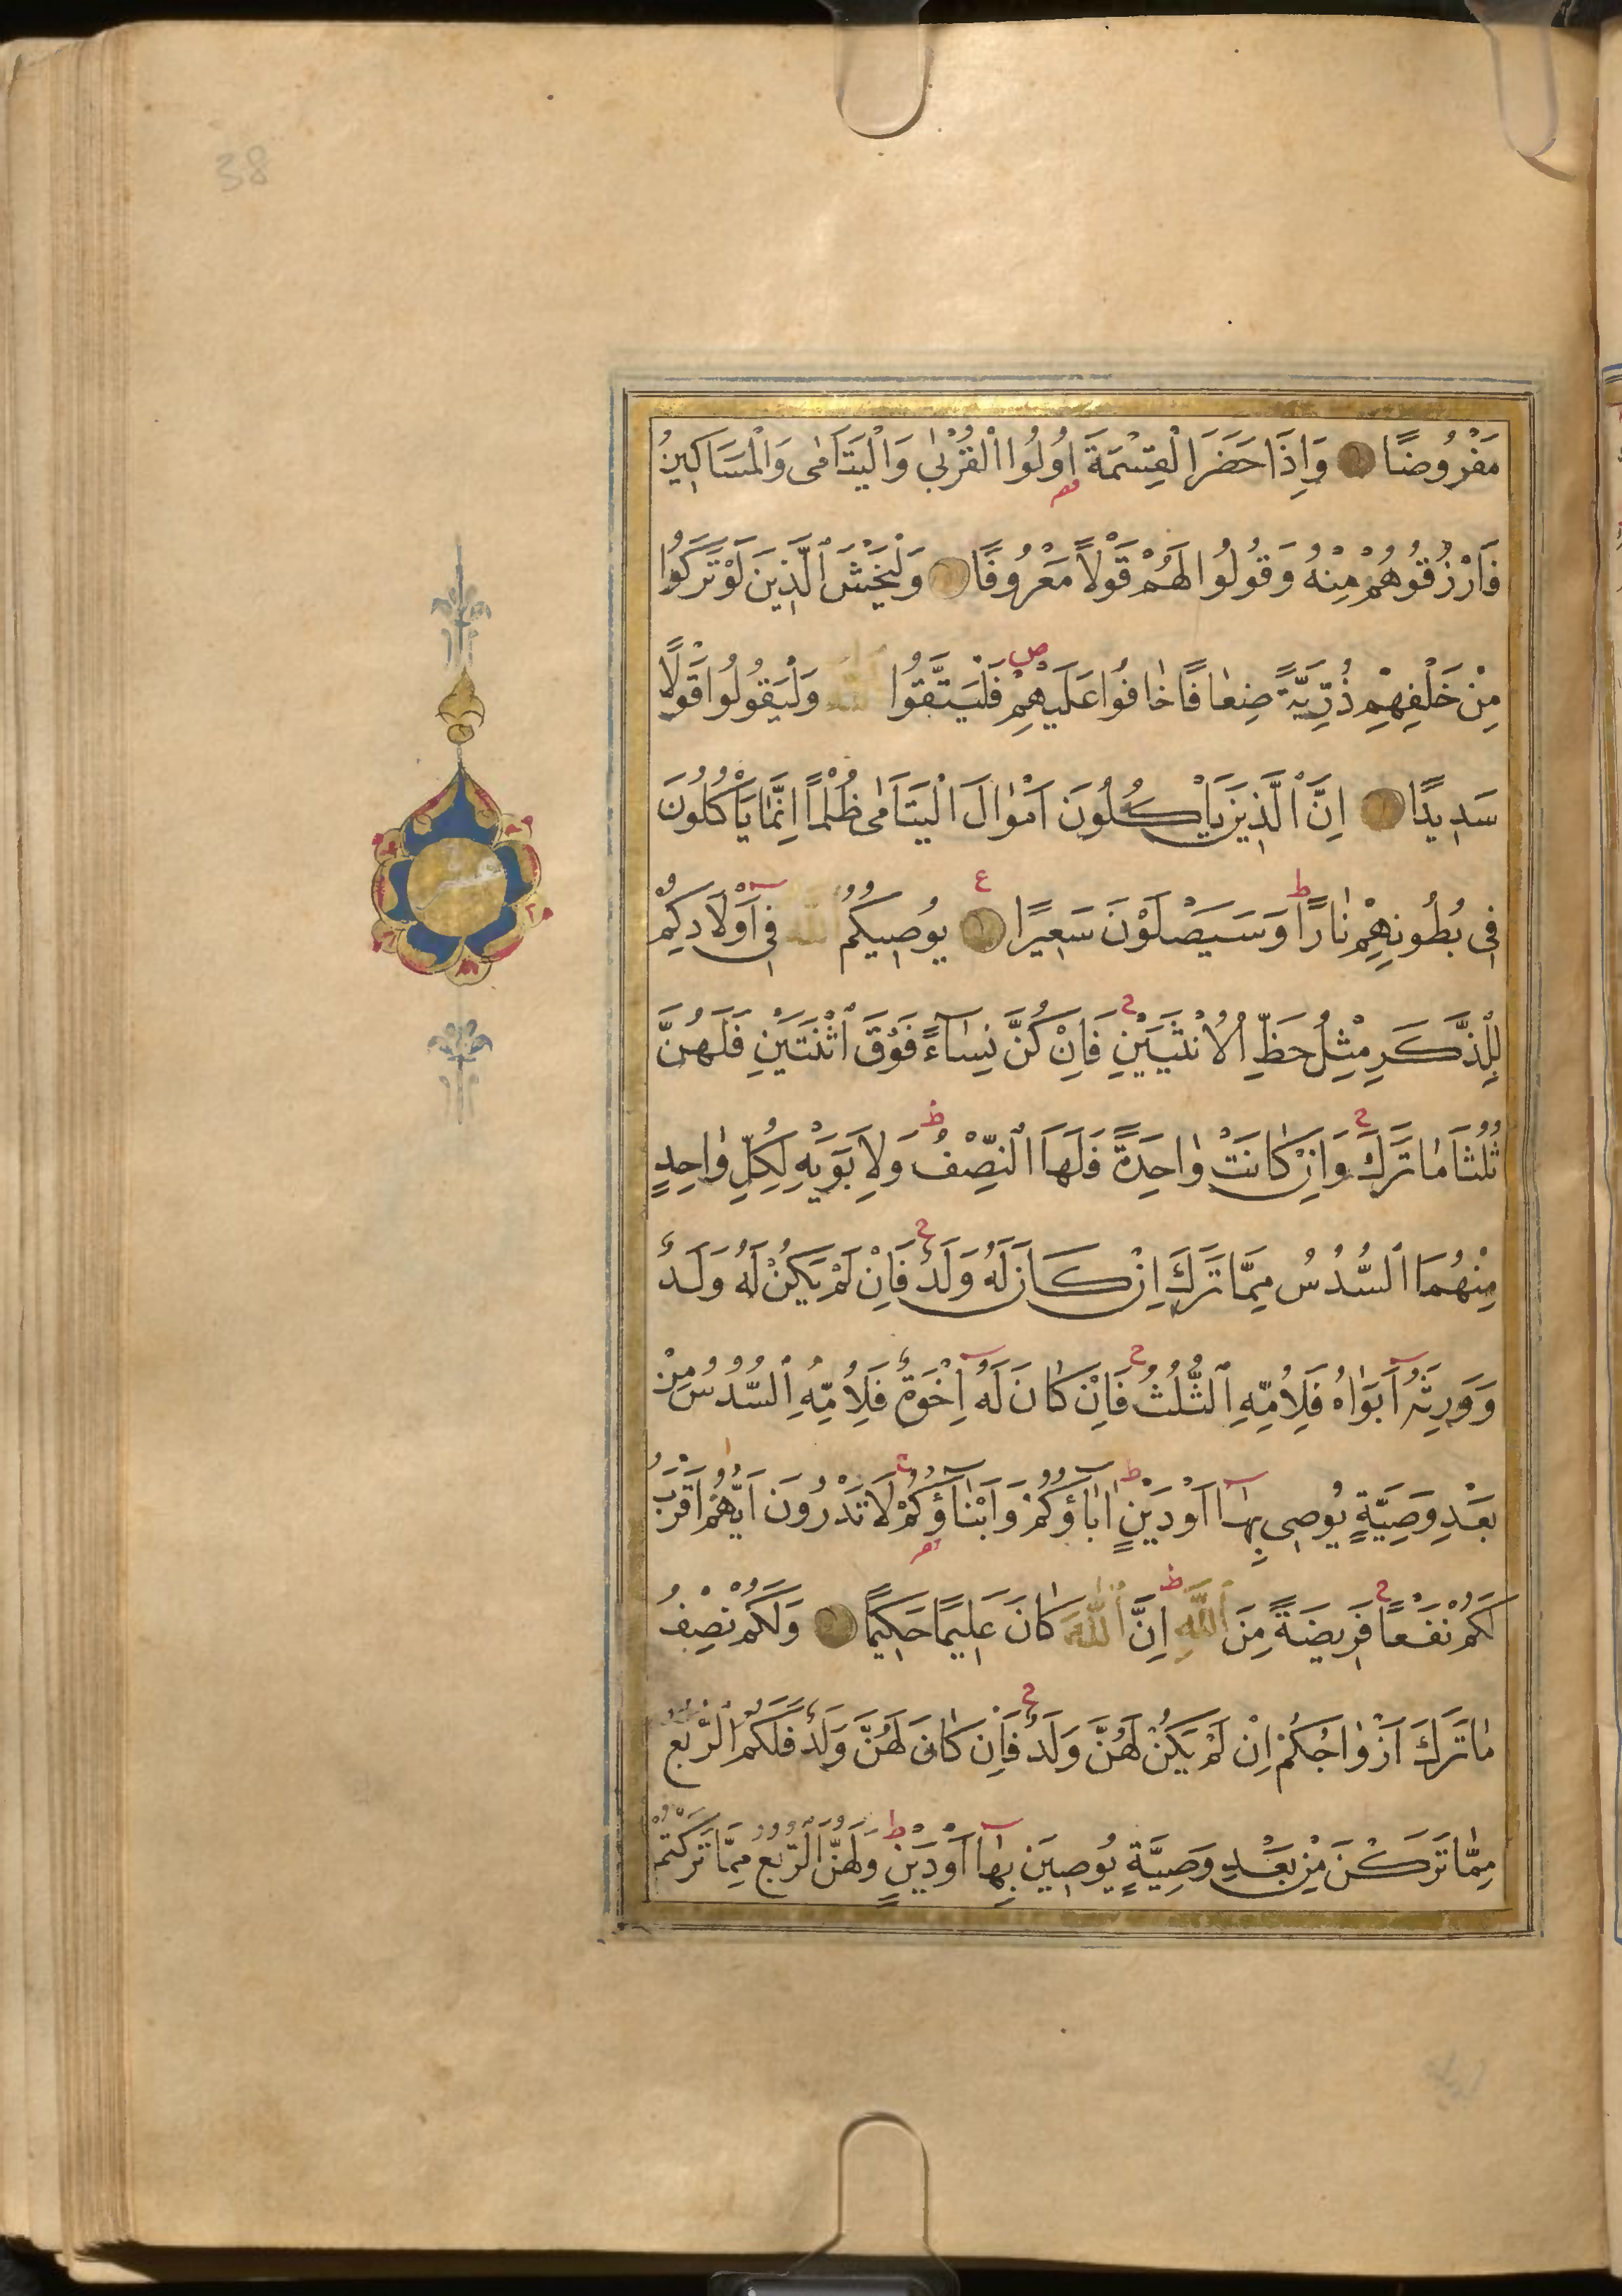 38
مَفْرُوضًا وَاِذَا حَضَرَ الْقِسْمَةَ اُولُوا الْقُرْبٰى وَالْيَتَامٰى وَالْمَسَاكِينُ
فَارْزُقُوهُمْ مِنْهُ وَقُولُوا لَهُمْ قَوْلًا مَعْرُوفًا وَلْيَخْشَ الَّذِينَ لَوْ تَرَكُوا
مِنْ خَلْفِهِمْ ذُرِّيَّةً ضِعَافًا خَافُوا عَلَيْهِمْ فَلْيَتَّقُوا اللّٰهَ وَلْيَقُولُوا قَوْلًا
سَدِيدًا اِنَّ الَّذِينَ يَاْكُلُونَ اَمْوَالَ الْيَتَامٰى ظُلْمًا اِنَّمَا يَاْكُلُونَ
فِى بُطُونِهِمْ نَارًا وَسَيَصْلَوْنَ سَعِيرًا يُوصِيكُمُ اللّٰهُ فِى اَوْلَادِكُمْ
عشر
لِلذَّكَرِ مِثْلُ حَظِّ الْاُنْثَيَيْنِ فَاِنْ كُنَّ نِسَاءً فَوْقَ اثْنَتَيْنِ فَلَهُنَّ
ثُلُثَا مَا تَرَكَ وَاِنْ كَانَتْ وَاحِدَةً فَلَهَا النِّصْفُ وَلِاَبَوَيْهِ لِكُلِّ وَاحِدٍ
مِنْهُمَا السُّدُسُ مِمَّا تَرَكَ اِنْ كَانَ لَهُ وَلَدٌ فَاِنْ لَمْ يَكُنْ لَهُ وَلَدٌ
وَوَرِثَهُ اَبَوَاهُ فَلِاُمِّهِ الثُّلُثُ فَاِنْ كَانَ لَهُ اِخْوَةٌ فَلِاُمِّهِ السُّدُسُ مِنْ
بَعْدِ وَصِيَّةٍ يُوصِى بِهَا اَوْ دَيْنٍ اٰبَاؤُكُمْ وَاَبْنَاؤُكُمْ لَا تَدْرُونَ اَيُّهُمْ اَقْرَبُ
لَكُمْ نَفْعًا فَرِيضَةً مِنَ اللّٰهِ اِنَّ اللّٰهَ كَانَ عَلِيمًا حَكِيمًا وَلَكُمْ نِصْفُ
مَا تَرَكَ اَزْوَاجُكُمْ اِنْ لَمْ يَكُنْ لَهُنَّ وَلَدٌ فَاِنْ كَانَ لَهُنَّ وَلَدٌ فَلَكُمُ الرُّبُعُ
مِمَّا تَرَكْنَ مِنْ بَعْدِ وَصِيَّةٍ يُوصِينَ بِهَا اَوْ دَيْنٍ وَلَهُنَّ الرُّبُعُ مِمَّا تَرَكْتُمْ